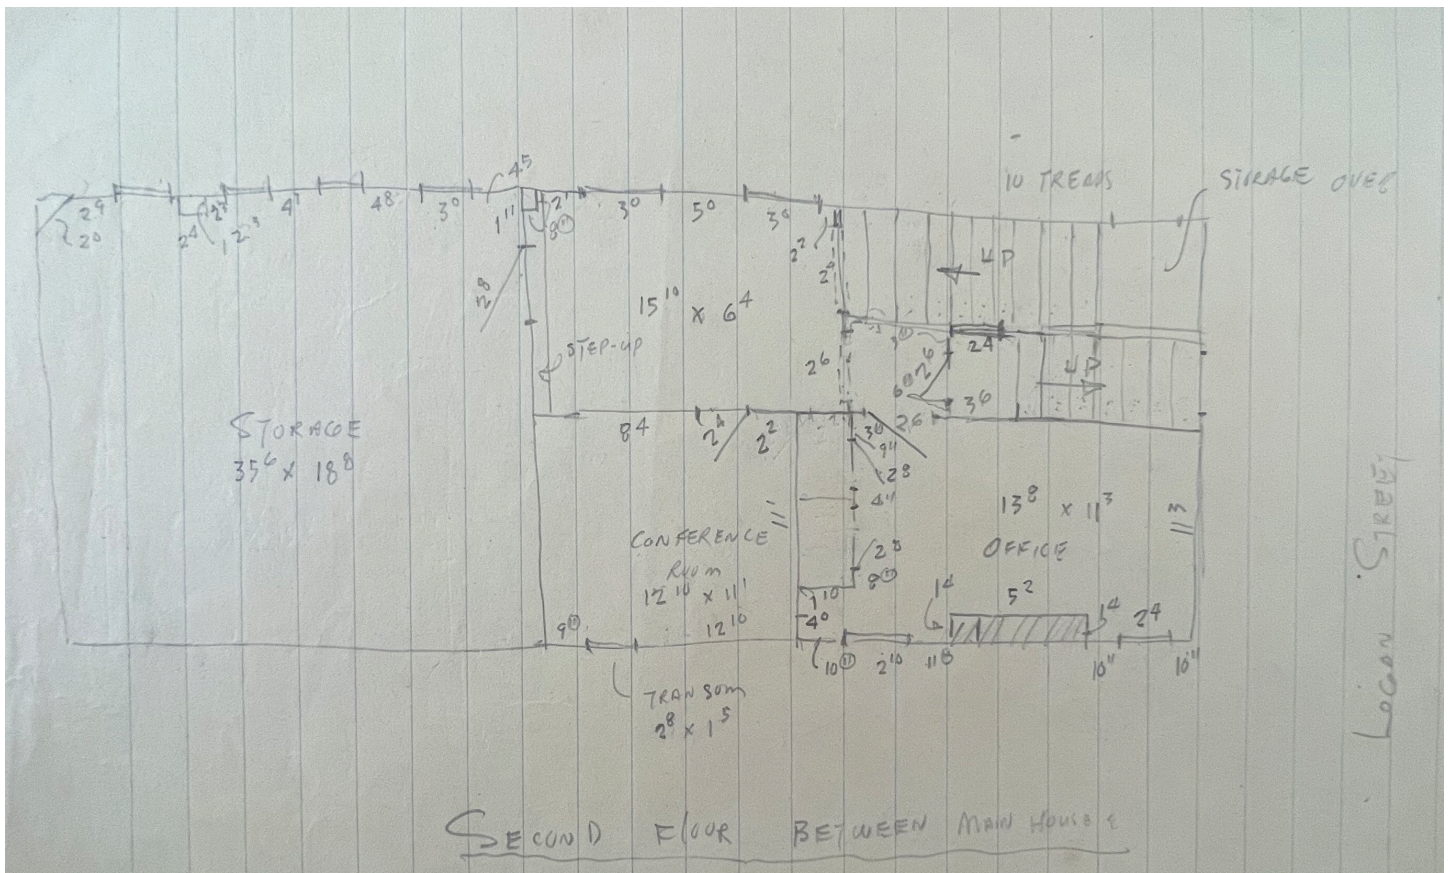 10 TREADS
STORAGE OVER
4⁵
2⁹
2⁰
2⁴
1 2³
4¹
4⁸
3⁰
1¹¹
2¹
8⑪
3⁰
5⁰
3⁰
2²
2⁴
UP
2⁸
15¹⁰ x 6⁴
STEP-UP
2⁶
2⁶
2⁴
UP
6⑪
3⁶
STORAGE
35⁶ x 18⁸
8⁴
2⁴
2²
3⁶
2⁶
9"
2⁸
4"
CONFERENCE
ROOM
12¹⁰ x 11¹
12¹⁰
11¹
13⁸ x 11³
OFFICE
11³
2⁸
8⑪
1¹⁰
4⁰
1⁴
5²
1⁴
2⁴
9⑪
10⑪
2¹⁰
11⁸
10"
10"
TRANSOM
2⁸ x 1⁵
LOGAN STREET
SECOND FLOOR BETWEEN MAIN HOUSE &